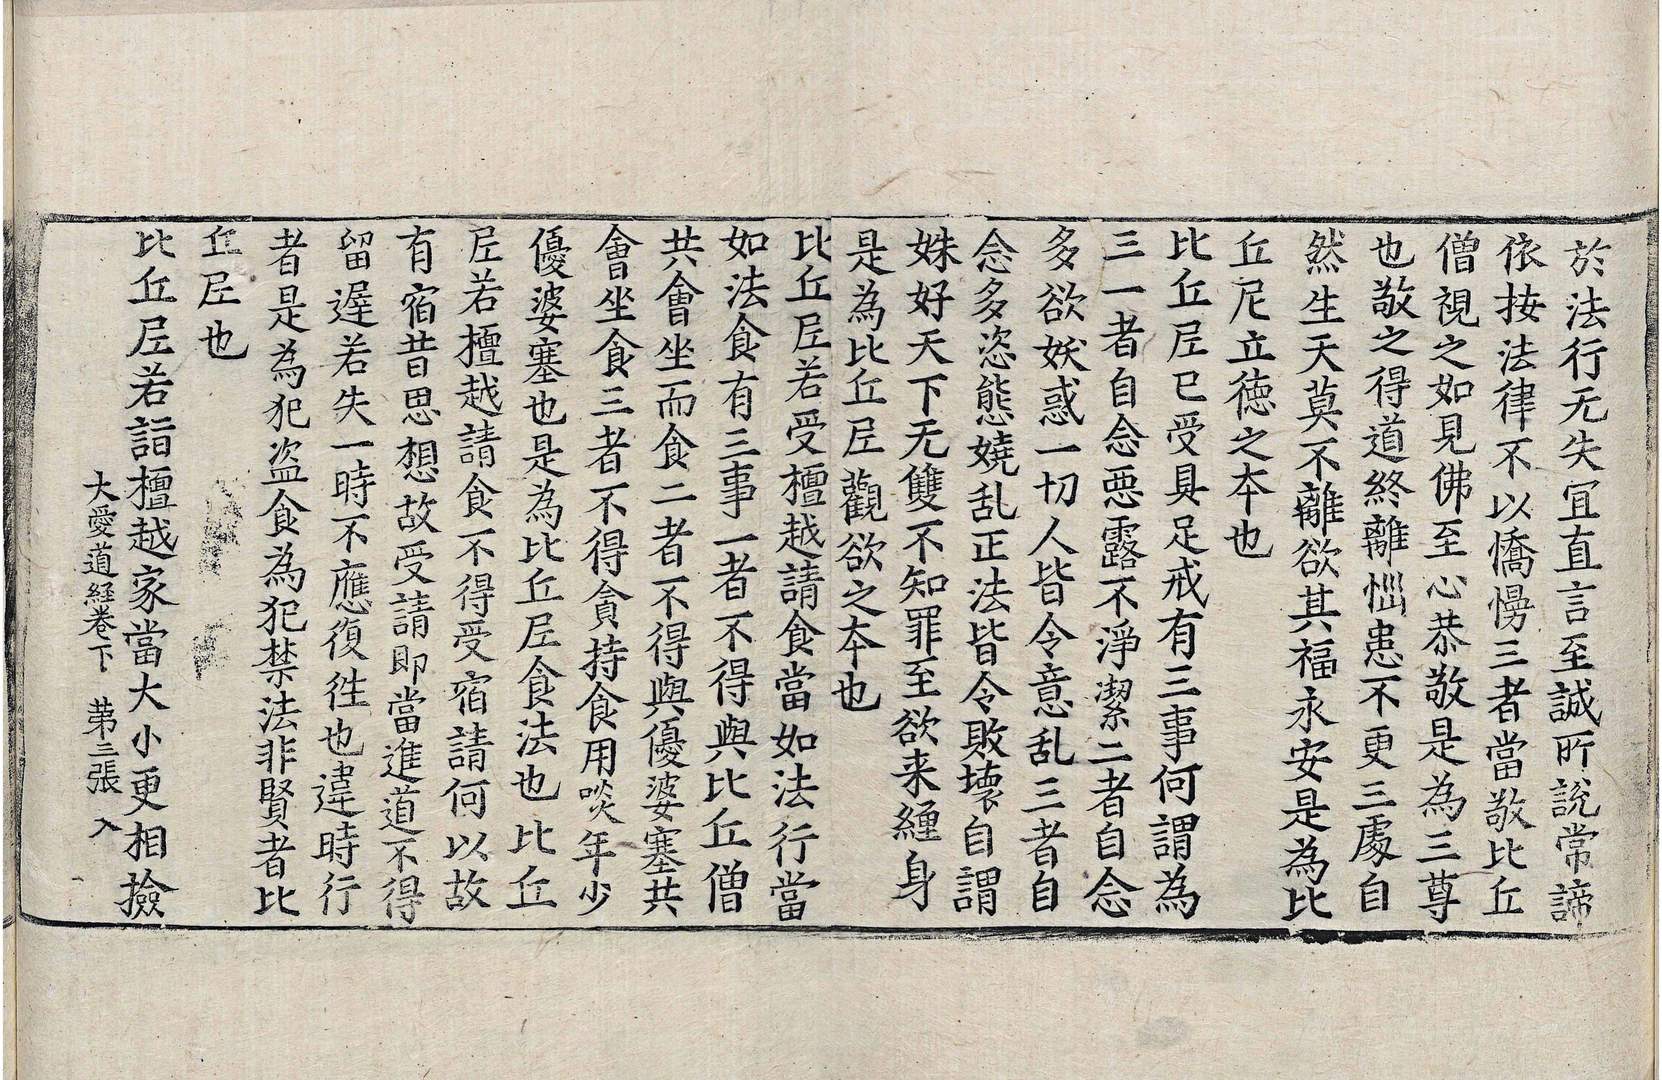 於法行无失冝直言至誠所說常諦
依按法律不以憍慢三者當敬比丘
僧視之如見佛至心恭敬是為三尊
也敬之得道終離惱患不更三處自
然生天莫不離欲其福永安是為比
丘尼立德之本也
比丘𡰱已受具足戒有三事何謂為
三一者自念惡露不淨潔二者自念
多欲妖惑一切人皆令意乱三者自
念多恣態嬈乱正法皆令敗壞自謂
姝好天下无雙不知罪至欲来纏身
是為比丘𡰱觀欲之本也
比丘𡰱若受檀越請食當如法行當
如法食有三事一者不得與比丘僧
共會坐而食二者不得與優婆塞共
會坐食三者不得貪持食用啖年少
優婆塞也是為比丘𡰱食法也比丘
𡰱若檀越請食不得受宿請何以故
有宿昔思想故受請即當進道不得
留遲若失一時不應復往也違時行
者是為犯盗食為犯禁法非賢者比
丘𡰱也
比丘𡰱若詣檀越家當大小更相撿
大愛道経卷下 苐三張 入